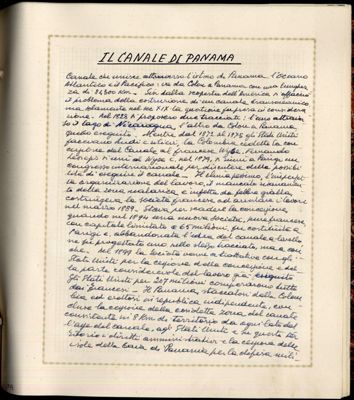 IL CANALE DI PANAMA
Canale che unisce attraverso l'istmo di Panama l'Oceano
Atlantico e il Pacifico: va da Colon a Panama con una lunghez
za di 81,300 Km. Sin dalla scoperta dell'America si affacciò
il problema della costruzione di un canale transoceanico
ma solamente nel sec XIX la questione fu presa in considera
zione. Nel 1825 si proposero due tracciati: l'uno attraver
so il lago di Nicaragua, l'altro da Colon a Panama,
quello eseguito. Mentre dal 1872 al 1875 gli Stati Uniti
facevano studi e rilievi, la Colombia cedette la con
cessione del Canale al francese Wyse. Fernando
Lesseps si unì al Wyse e, nel 1879, si riunì a Parigi un
congresso internazionale per discutere della possibi
lità di eseguire il canale. Il clima pessimo, l'imperfet
ta organizzazione del lavoro, il mancato risanamento
della zona malarica e infetta da febbre gialla
costrinsero la società francese ad arrestare i lavori
nel marzo 1889. Stava per scadere la concessione
quando nel 1894 una nuova società, pure francese
con capitale limitato a 65 milioni, fu costituita a
Parigi e, abbandonata l'idea del canale a livello
ne fu progettato uno nello stesso tracciato, ma a con
che. Nel 1899 la società venne a trattative con gli
Stati Uniti per la cessione della concessione e del
la parte considerevole del lavoro già eseguito
Gli Stati Uniti per 207 milioni comperarono tutto
dai francesi. Il Panama, staccatosi dalla Colom
bia ed erettosi in repubblica indipendente, con
cluse la cessione della cosidetta zona del canale
consistente in 8 Km di territorio da ogni lato del
l'asse del canale, agli Stati Uniti e su questo ter
ritorio i diritti amministrativi e la cessione delle
isole della baia di Panama per la difesa mili